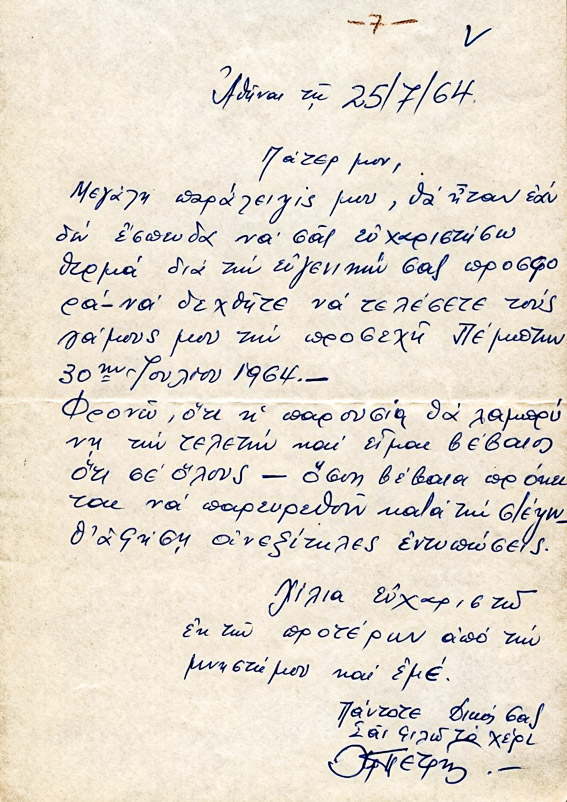 -7-
Ἀθῆναι τῇ 25/7/64.
Πάτερ μου,
Μεγάλη παράλειψίς μου, θά ἦταν ἐάν
δέν ἔσπευδα νά σᾶς εὐχαριστήσω
θερμά διά τήν εὐγενικήν σας προσφο
ρά-νά δεχθῆτε νά τελέσετε τούς
γάμους μου τήν προσεχῆ Πέμπτην
30ην Ἰουλίου 1964.—
Φρονῶ, ὅτι ἡ παρουσία θά λαμπρύ
νη τήν τελετήν καί εἶμαι βέβαιος
ὅτι σέ ὅλους — ὅσοι βέβαια πρόκει
ται νά παρευρεθοῦν κατά τήν στέψιν_
θ' ἀφήσῃ ἀνεξίτηλες ἐντυπώσεις.
Χίλια εὐχαριστῶ
ἐκ τῶν προτέρων ἀπό τήν
μνηστή μου καί ἐμέ.
Πάντοτε δικός σας
Σᾶς φιλῶ τό χέρι